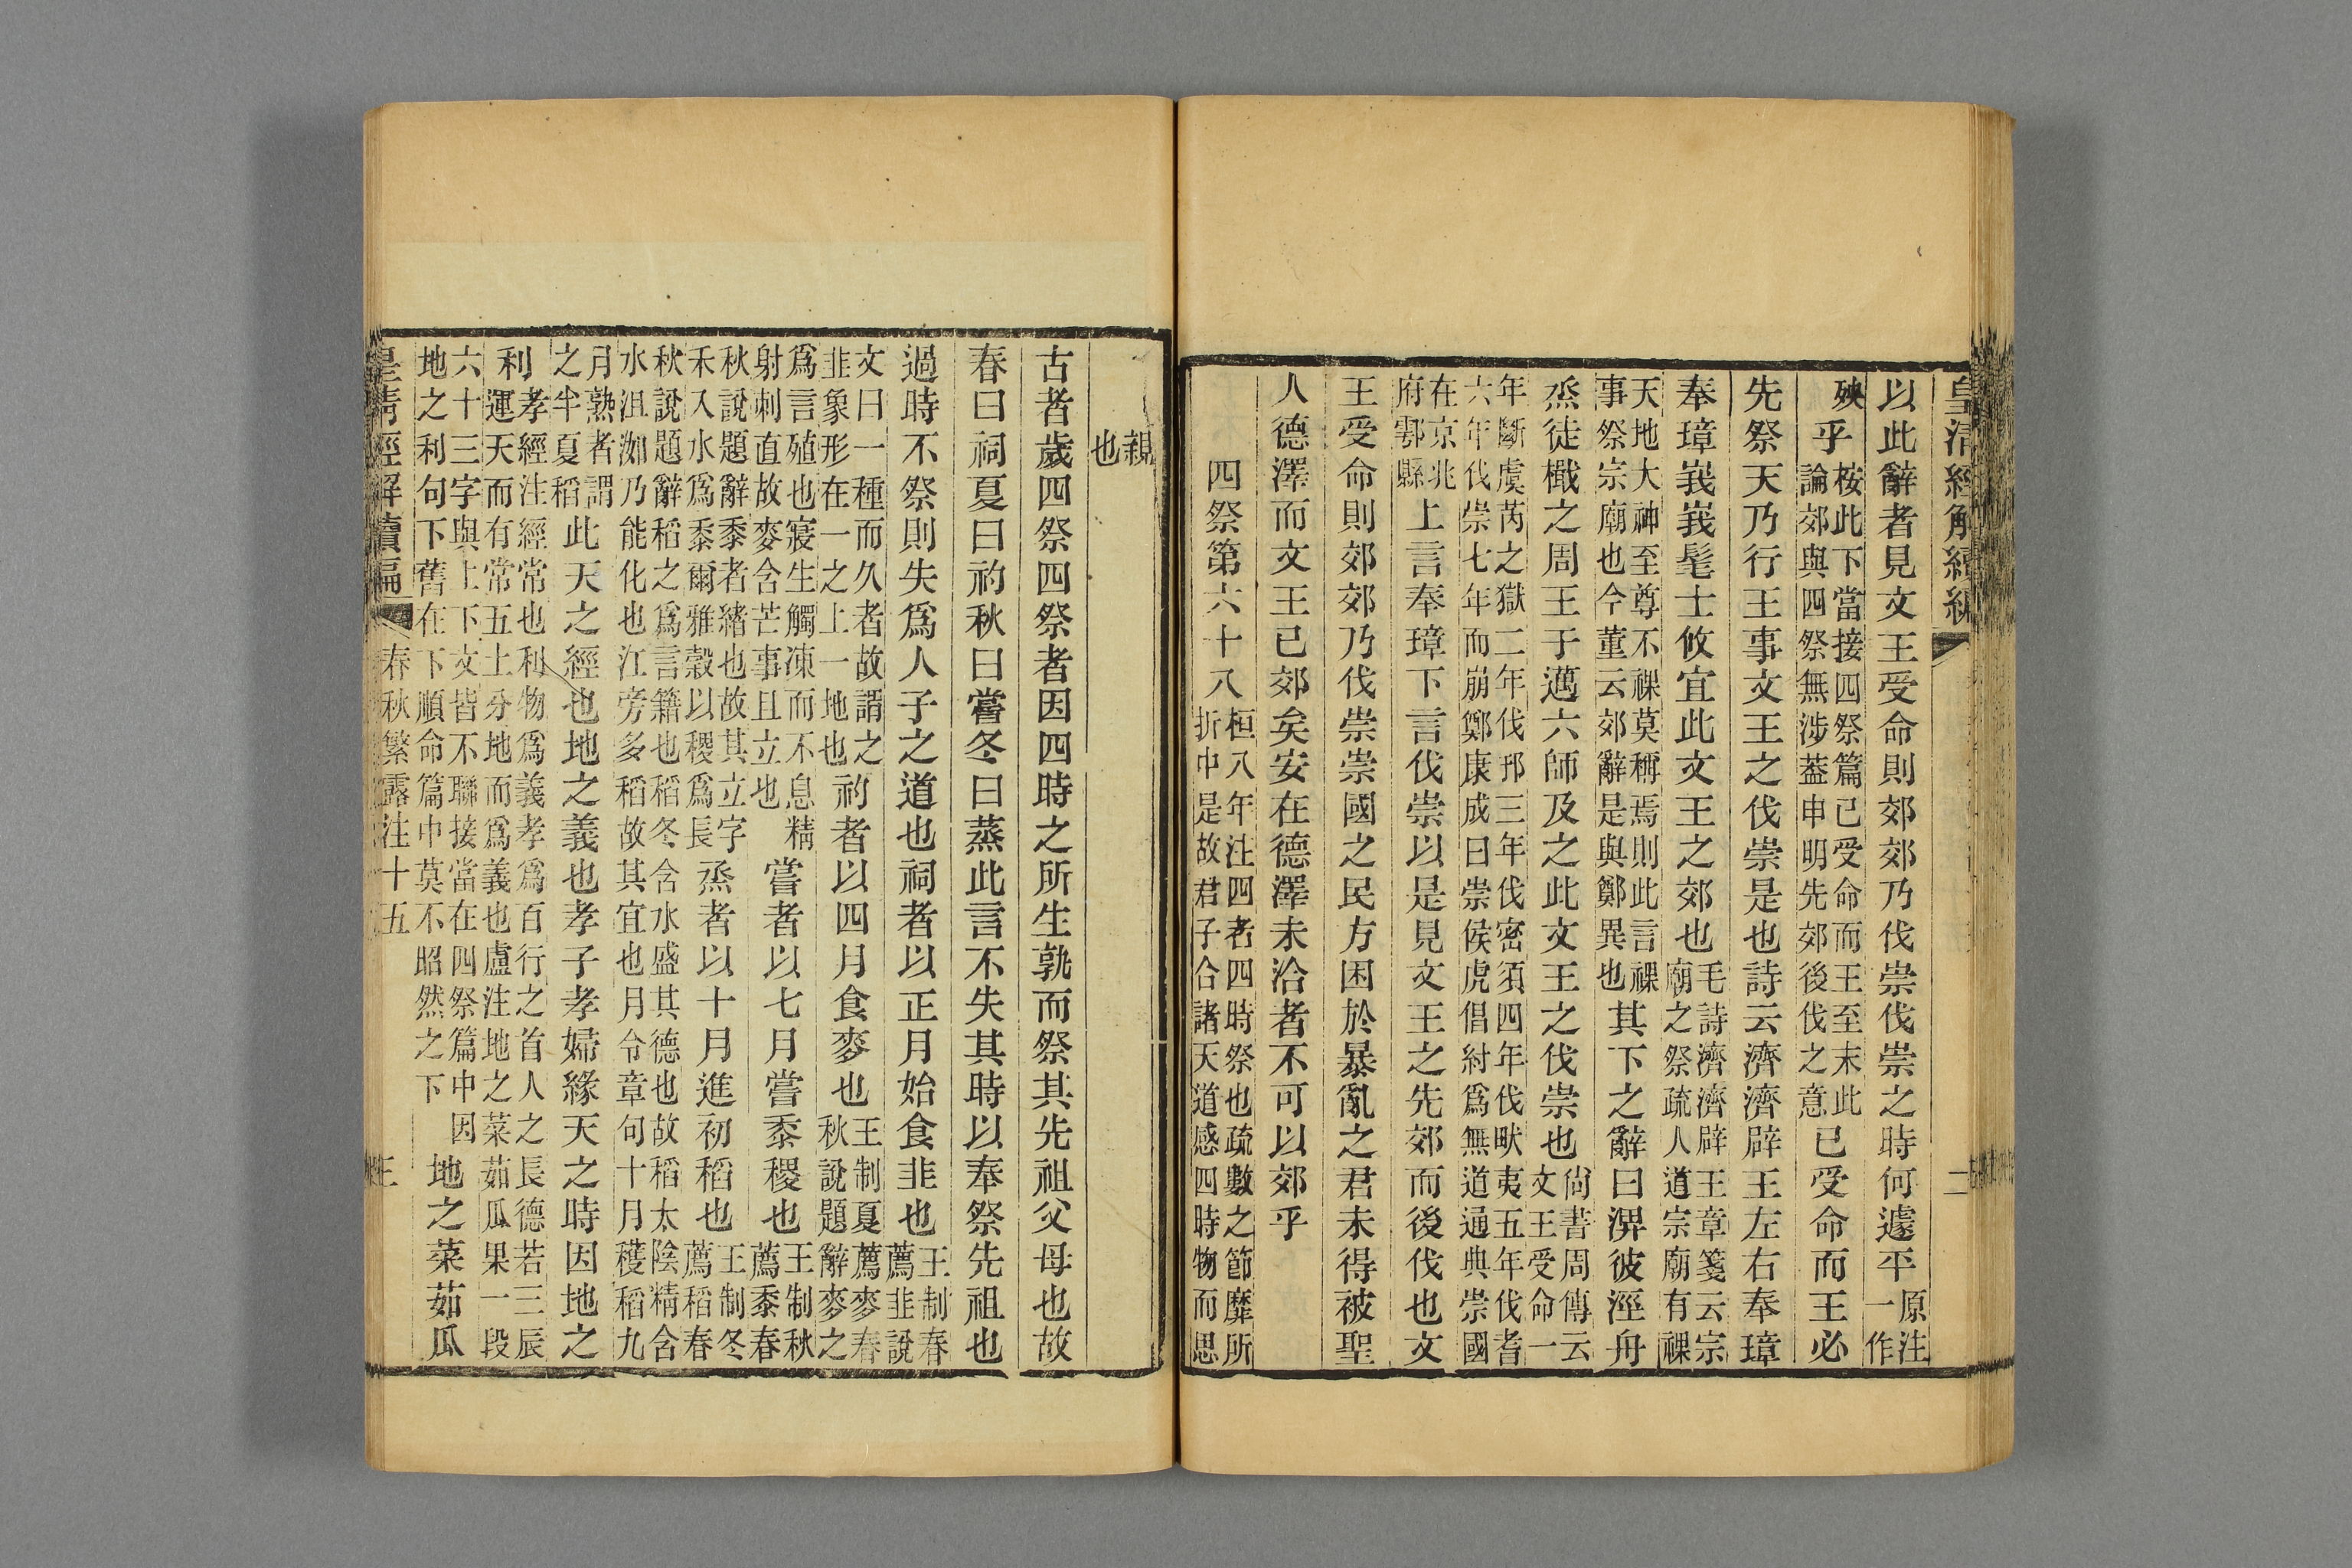 皇清經解續編 二
以此辭者見文王受命則郊郊乃伐崇伐崇之時何遽平原注一作
殃乎桉此下當接四祭篇已受命而王至末此論郊與四祭無涉葢申明先郊後伐之意已受命而王必
先祭天乃行王事文王之伐崇是也詩云濟濟辟王左右奉璋
奉璋峩峩髦士攸宜此文王之郊也毛詩濟濟辟王章箋云宗廟之祭疏人道宗廟有祼
天地大神至尊不祼莫稱焉則此言祼事祭宗廟也今董云郊辭是與鄭異也其下之辭曰淠彼涇舟
烝徒檝之周王于邁六師及之此文王之伐崇也尙書周傳云文王受命一
年斷虞芮之獄二年伐邘三年伐密須四年伐畎夷五年伐耆六年伐崇七年而崩鄭康成曰崇侯虎倡紂爲無道通典崇國
在京兆府鄠縣上言奉璋下言伐崇以是見文王之先郊而後伐也文
王受命則郊郊乃伐崇崇國之民方困於暴亂之君未得被聖
人德澤而文王已郊矣安在德澤未洽者不可以郊乎
四祭第六十八桓八年注四者四時祭也疏數之節靡所折中是故君子合諸天道感四時物而思
親也
古者歲四祭四祭者因四時之所生孰而祭其先祖父母也故
春曰祠夏曰礿秋曰嘗冬曰蒸此言不失其時以奉祭先祖也
過時不祭則失爲人子之道也祠者以正月始食韭也王制春薦韭說
文曰一種而久者故謂之韭象形在一之上一地也礿者以四月食麥也王制夏薦麥春秋說題辭麥之
爲言殖也寢生觸凍而不息精射刺直故麥含芒事且立也嘗者以七月嘗黍稷也王制秋薦黍春
秋說題辭黍者緒也故其立字禾入水爲黍爾雅穀以稷爲長烝者以十月進初稻也王制冬薦稻春
秋說題辭稻之爲言籍也稻冬含水盛其德也故稻太陰精含水沮洳乃能化也江旁多稻故其宜也月令章句十月穫稻九
月熟者謂之半夏稻此天之經也地之義也孝子孝婦緣天之時因地之
利孝經注經常也利物爲義孝爲百行之首人之長德若三辰運天而有常五土分地而爲義也盧注地之菜茹瓜果一段
六十三字與上下文皆不聯接當在四祭篇中因地之利句下舊在下順命篇中莫不昭然之下地之菜茹瓜
皇清經解續編 春秋繁露注十五